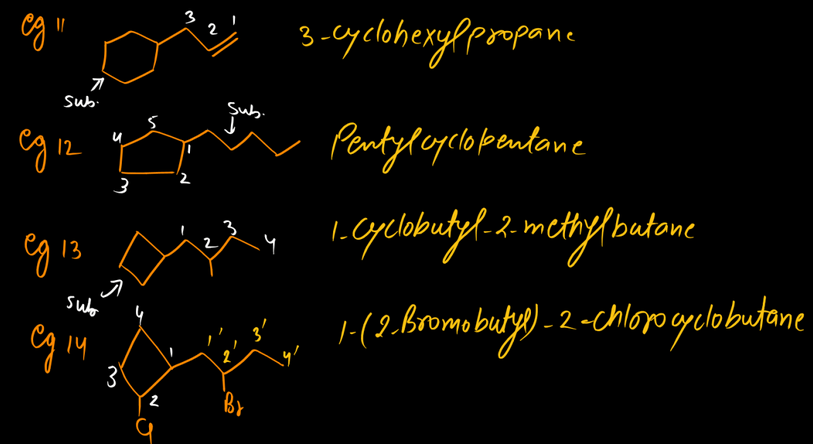 eg 11
3 2 1
3-cyclohexylpropane
sub.
eg 12
sub.
4 5 1 2 3
Pentylcyclopentane
eg 13
1 2 3 4
1-cyclobutyl-2-methylbutane
sub
eg 14
4 1 2 3
1' 2' 3' 4'
Br
Cl
1-(2-Bromobutyl)-2-chlorocyclobutane